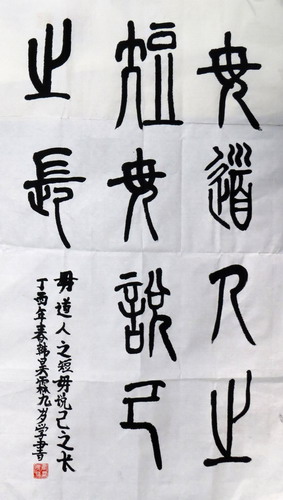 毋道人之
短毋說己
之長
毋道人之短毋悦己之长
丁酉年春韩昊霖九岁学书